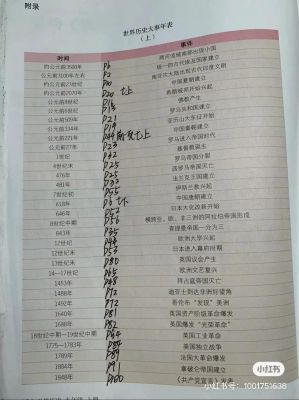 附录
世界历史大事年表
（上）
时间 事件
约公元前3500年 P6 两河流域南部出现小国
约公元前3100年左右 P2 统一的古代埃及国家建立
约公元前23世纪 南亚次大陆出现古代印度文明
约公元前2070年 七上 中国夏朝建立
公元前8世纪 希腊城邦开始兴起
公元前6世纪 佛教产生
公元前509年 P21 罗马共和国建立
公元前334年 亚历山大东征开始
公元前221年 七上 中国秦朝建立
公元前27年 P23 罗马进入帝国时代
1世纪 P32 基督教诞生
4世纪末 P25 罗马帝国分裂
476年 P25 西罗马帝国灭亡
481年 P33 法兰克王国建立
7世纪初 P55 伊斯兰教兴起
618年 P6 七下 中国唐朝建立
646年 P52 日本大化改新开始
8世纪中期 P56 横跨亚、欧、非三洲的阿拉伯帝国形成
843年 P35 查理曼帝国一分为三
12世纪 欧洲大学兴起
12世纪末 P53 日本进入幕府时期
13世纪末 P80 英国议会产生
14—17世纪 P65 欧洲文艺复兴
1453年 P48 拜占庭帝国灭亡
1488年 P72 迪亚士到达非洲好望角
1492年 P72 哥伦布“发现”美洲
1640年 P81 英国资产阶级革命爆发
1688年 P82 英国爆发“光荣革命”
18世纪中期—19世纪中期 英国工业革命
1775—1783年 美国独立战争
1789年 P89 法国大革命爆发
1804年 P91 拿破仑帝国建立
1848年 P100 《共产党宣言》发表
小红书
小红书号：1001751638